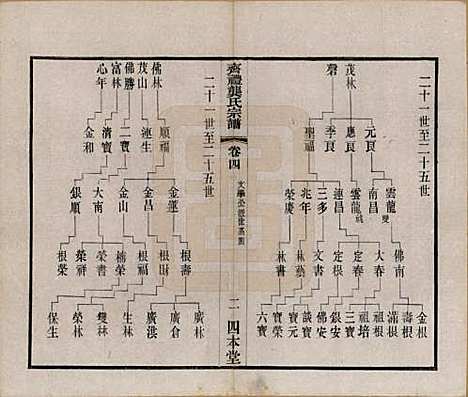 二十一世至二十五世
茂林
磬
元良
應良
季良
聖福
雲龍 雙
南昌
雲龍 咸
連昌
三多
兆年
榮慶
佛南
大春
定春
定根
文書
林藝
林書
金根
壽根
滿根
祖根
祖培
三寶
銀安
佛安
談寶
寶元
寶榮
六寶
齊禮龔氏宗譜
卷四
二
四本堂
二十一世至二十五世
佛林
茂山
佛勝
富林
心年
順福
連生
二寶
清寶
金和
金運
金昌
金山
大南
銀順
根壽
根財
根福
楠榮
榮書
榮祥
根榮
廣林
廣倉
廣洪
生林
雙林
榮林
保生